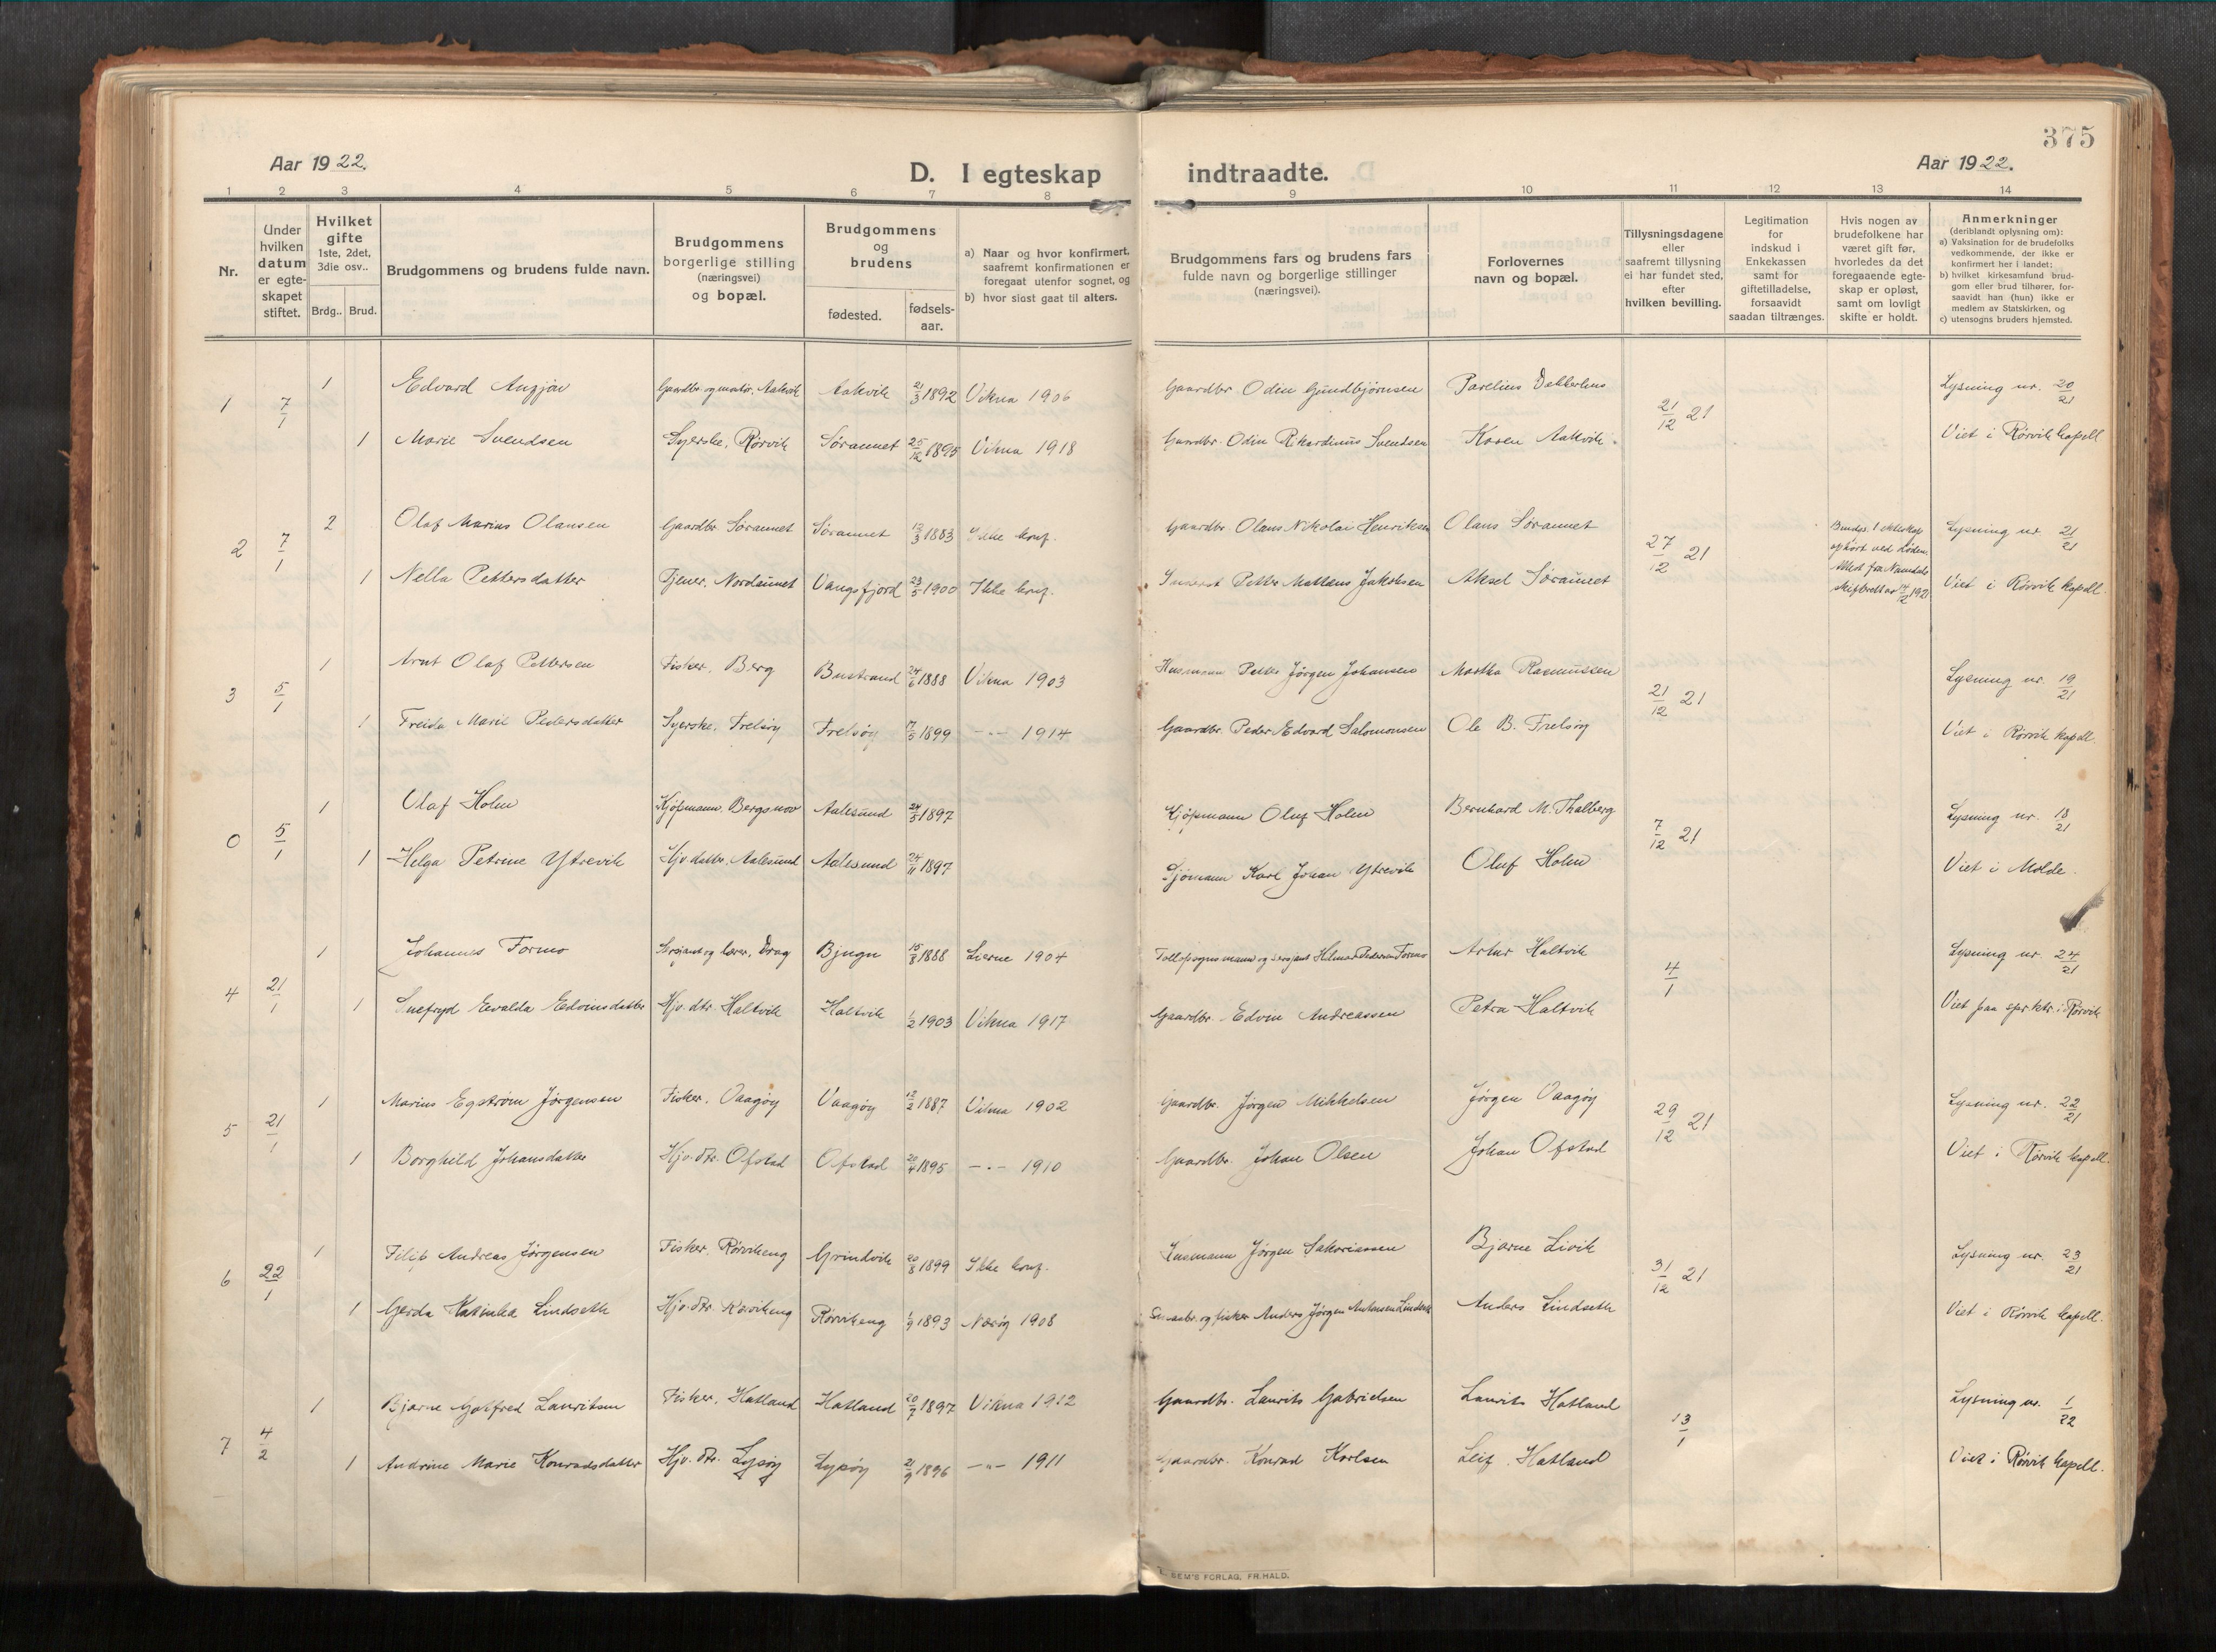 375
Aar 1922.
D. I egteskap indtraadte.
Aar 1922.
1 2 3 4 5 6 7 8 9 10 11 12 13 14
Nr.
Under hvilken datum er egteskapet stiftet.
Hvilket gifte
1ste, 2det, 3die osv..
Brdg.. Brud.
Brudgommens og brudens fulde navn.
Brudgommens borgerlige stilling (næringsvei) og bopæl.
Brudgommens og brudens
fødested.
fødsels-aar.
a) Naar og hvor konfirmert, saafremt konfirmationen er foregaat utenfor sognet, og
b) hvor sidst gaat til alters.
Brudgommens fars og brudens fars fulde navn og borgerlige stillinger (næringsvei).
Forlovernes navn og bopæl.
Tillysningsdagene eller saafremt tillysning ei har fundet sted, efter hvilken bevilling.
Legitimation for indskud i Enkekassen samt for giftetilladelse, forsaavidt saadan tiltrænges.
Hvis nogen av brudefolkene har været gift før, hvorledes da det foregaaende egteskap er opløst, samt om lovligt skifte er holdt.
Anmerkninger
(deriblandt oplysning om):
a) Vaksination for de brudefolks vedkommende, der ikke er konfirmert her i landet;
b) hvilket kirkesamfund brudgom eller brud tilhører, forsaavidt han (hun) ikke er medlem av Statskirken, og
c) utensogns bruders hjemsted.
1 7/1 1 Edvard Anzjøn Gaardbr. og montør, Aakvik Aakvik 21/3 1892 Vikna 1906 Gaardbr. Oden Gundbjørnsen Parelius 21/12 21 Lysning nr. 20/21
1 Marie Svendsen Syerske, Rørvik Søraunet 25/12 1895 Vikna 1918 Gaardbr. Odin Rikardinus Svendsen Karen Aakvik Viet i Rørvik kapell
2 7/1 2 Olaf Marius Olausen Gaardbr. Søraunet Søraunet 12/3 1883 Ikke konf. Gaardbr. Olaus Nikolai Henriksen Olaus Søraunet 27/12 21 Brudgs. 1 ekteskap ophørt ved døden. Lysning nr. 21/21
1 Nella Pettersdatter Tjener, Nordaunet Vangsfjord 23/5 1900 Ikke konf. Petter Mattæus Jakobsen Aksel Søraunet Attest fra Namdals skifterett av Viet i Rørvik kapell.
3 5/1 1 Arnt Olaf Pettersen Fisker, Berg Bustrand 24/6 1888 Vikna 1903 Husmann Petter Jørgen Johansen Martha Rasmussen 21/12 21 Lysning nr. 19/21
1 Freida Marie Pedersdatter Syerske, Frelsøy Frelsøy 17/5 1899 -"- 1914 Gaardbr. Peder Edvard Salomonsen Ole B. Frelsøy Viet i Rørvik kapell.
0 5/1 1 Olaf Holm Kjøpmann, Bergsnov Aalesund 24/5 1897 Kjøpmann Oluf Holm Bernhard M. Thalberg 7/12 21 Lysning nr. 18/21
1 Helga Petrine Ytrevik Hjv. datter, Aalesund Aalesund 24/11 1897 Sjømann Karl Johan Ytrevik Oluf Holm Viet i Molde.
4 21/1 1 Johannes Formo Sersjant og lærer, Drag Bjugn 15/8 1888 Lierne 1904 Tollopsynsmann og sersjant Hilmar Pedersen Formo Artur Haltvik 4/1 Lysning nr. 24/21
1 Snefryd Evalda Edvinsdatter Hjv. dtr. Haltvik Haltvik 1/2 1903 Vikna 1917 Gaardbr. Edvin Andreassen Petra Haltvik Viet paa spr.ktr. i Rørvik
5 21/1 1 Marius Egstrøm Jørgensen Fisker, Vaagøy Vaagøy 12/2 1887 Vikna 1902 Gaardbr. Jørgen Mikkelsen Jørgen Vaagøy 29/12 21 Lysning nr. 22/21
1 Borghild Johansdatter Hjv. dtr. Ofstad Ofstad 20/4 1895 -"- 1910 Gaardbr. Johan Olsen Johan Ofstad Viet i Rørvik kapell.
6 22/1 1 Filip Andreas Jørgensen Fisker, Rørvikeng Grindvik 20/8 1899 Ikke konf. Husmann Jørgen Sakariassen Bjarne Livik 31/12 21 Lysning nr. 23/21
1 Gerda Katinka Lindseth Hjv. dtr. Rørvikeng Rørvikeng 1/9 1893 Nærøy 1908 og fisker Anders Jørgen Antonsen Lindseth Anders Lindseth Viet i Rørvik kapell.
7 4/2 1 Bjarne Gotfred Lauritsen Fisker, Hatland Hatland 20/7 1897 Vikna 1912 Gaardbr. Laurits Gabrielsen Laurits Hatland 13/1 Lysning nr. 1/22
1 Andrine Marie Konradsdatter Hjv. dtr. Lysøy Lysøy 21/9 1896 -"- 1911 Gaardbr. Konrad Karlsen Leif Hatland Viet i Rørvik kapell.
SEM'S FORLAG, FR.HALD.